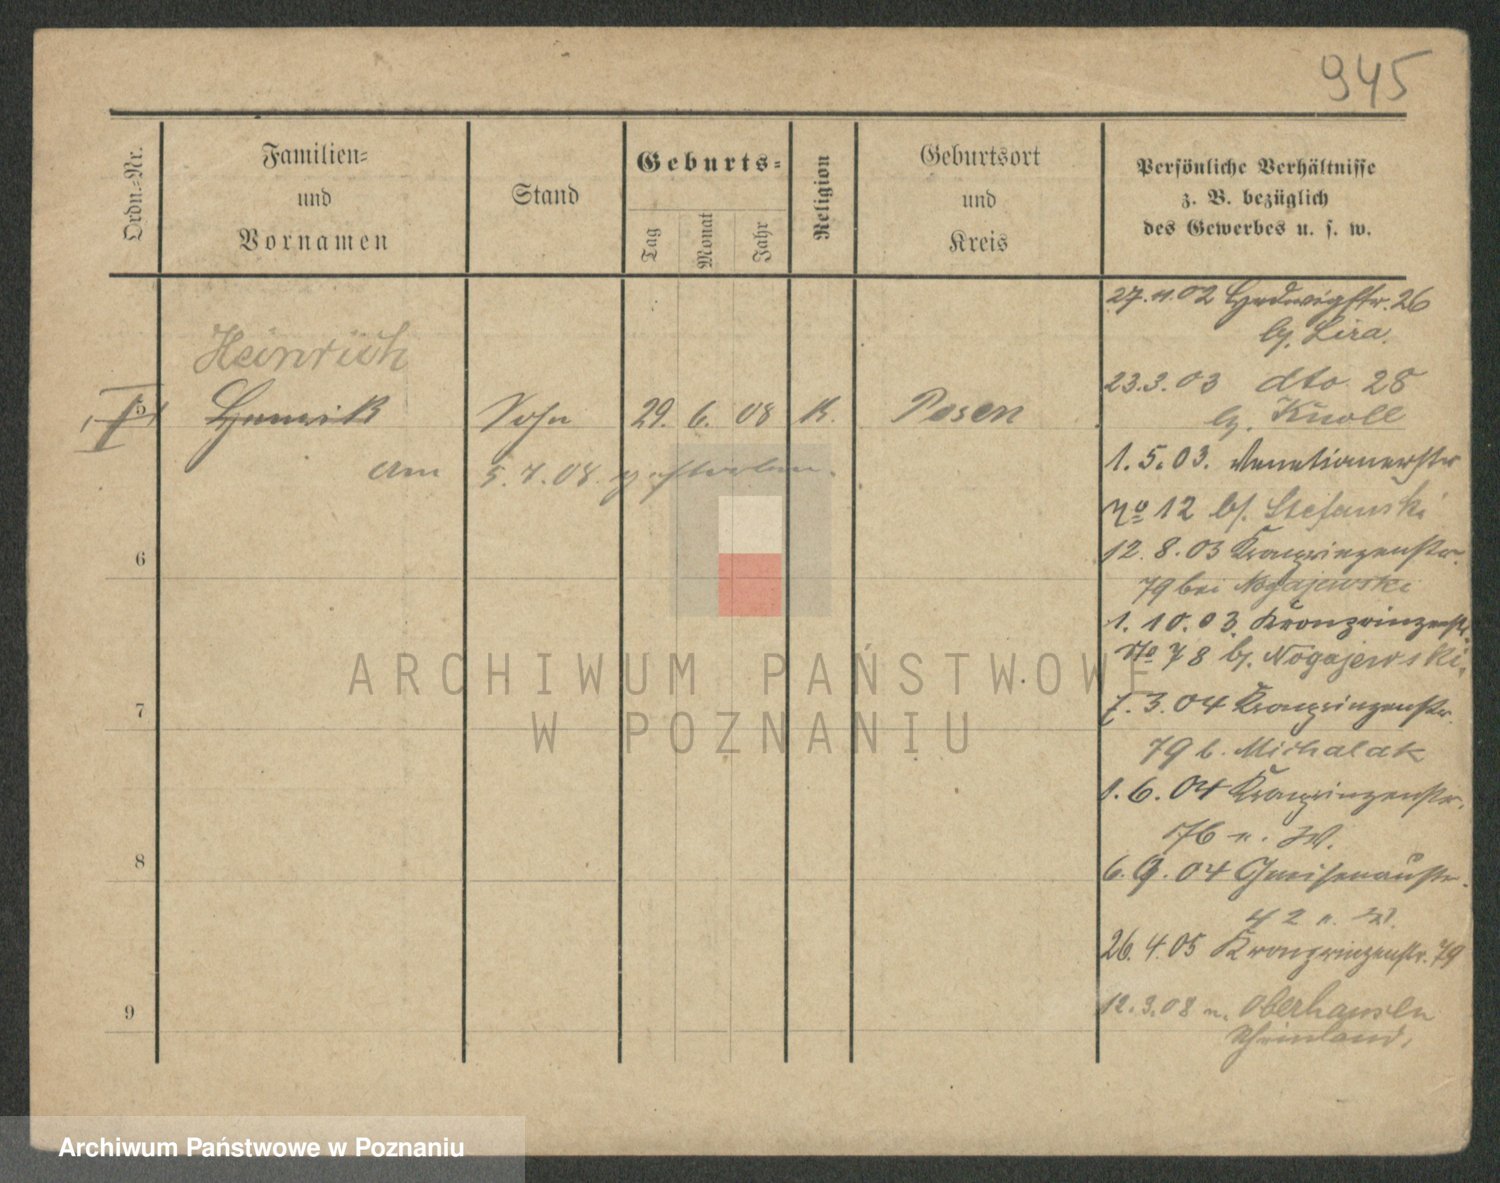 945
Ordn.=Nr.
Familien=
und
Vornamen
Stand
Geburts=
Tag
Monat
Jahr
Religion
Geburtsort
und
Kreis
Persönliche Verhältnisse
z. B. bezüglich
des Gewerbes u. s. w.
Heinrich
5 Henrik Sohn 29. 6. 08 K. Posen
am 5.7.08 gestorben.
6
7
8
9
27.11.02 Hedwigstr. 26
bj. Lira.
23.3.03 dto 28
bj. Knoll
1.5.03. Venetianerstr
No 12 bj. Stefanski
12.8.03 Kronprinzenstr.
79 bei Nogajewski
1.10.03. Kronprinzenstr.
No 78 bj. Nogajewski.
7.3.04 Kronprinzenstr.
79 b. Michalak
1.6.04 Kronprinzenstr.
76 n. W.
6.9.04 Gneisenaustr.
42 n.
26.4.05 Kronprinzenstr. 79
12.3.08 n. Oberhausen
Rheinland.
ARCHIWUM PAŃSTWOWE
W POZNANIU
Archiwum Państwowe w Poznaniu